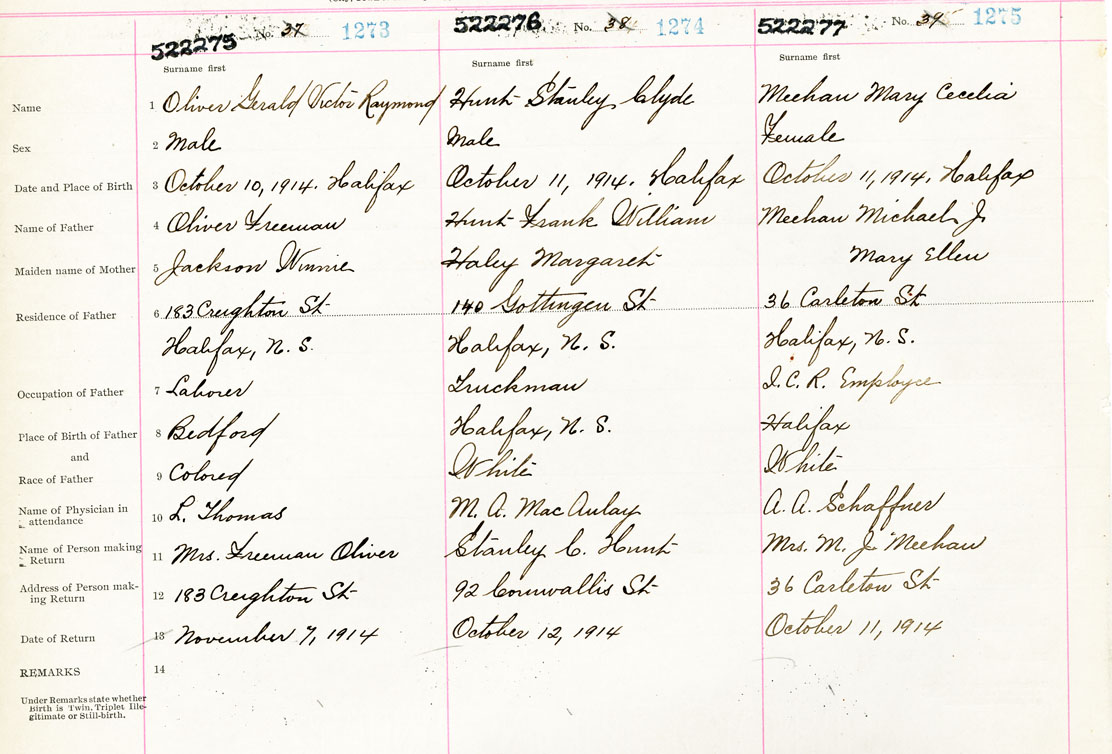 522275 No. 37 1273
522276 No. 38 1274
522277 No. 39 1275
Surname first Surname first Surname first
Name 1 Oliver Gerald Victor Raymond Hunt Stanley Clyde Meehan Mary Cecelia
Sex 2 Male Male Female
Date and Place of Birth 3 October 10, 1914. Halifax October 11, 1914. Halifax October 11, 1914. Halifax
Name of Father 4 Oliver Freeman Hunt Frank William Meehan Michael J.
Maiden name of Mother 5 Jackson Winnie Haley Margaret Mary Ellen
Residence of Father 6 183 Creighton St 140 Gottingen St 36 Carleton St
Halifax, N. S. Halifax, N. S. Halifax, N. S.
Occupation of Father 7 Laborer Truckman I. C. R. Employee
Place of Birth of Father 8 Bedford Halifax, N. S. Halifax
and
Race of Father 9 Colored White White
Name of Physician in
attendance 10 L. Thomas M. A. MacAulay A. A. Schaffner
Name of Person making
Return 11 Mrs. Freeman Oliver Stanley C. Hunt Mrs. M. J. Meehan
Address of Person mak-
ing Return 12 183 Creighton St 92 Cornwallis St 36 Carleton St
Date of Return 13 November 7, 1914 October 12, 1914 October 11, 1914
REMARKS 14
Under Remarks state whether
Birth is Twin, Triplet Ille-
gitimate or Still-birth.